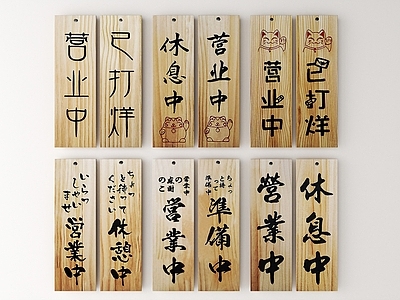 营业中
已打烊
休息中
营业中
营业中
已打烊
いらっ
しゃい
ませ
営業中
ちょっ
と待って
ください
休憩中
営業中
営業中
ちょっ
と待
って
準備中
準備中
營業中
休息中